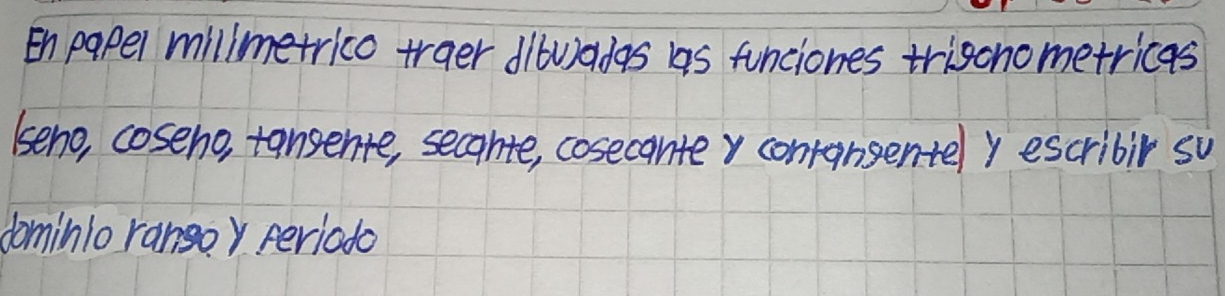 En papel milimetrico traer dibujadas las funciones trigonometricas
(seno, coseno, tangente, secante, cosecante y contangente) y escribir su
dominio rango y periodo